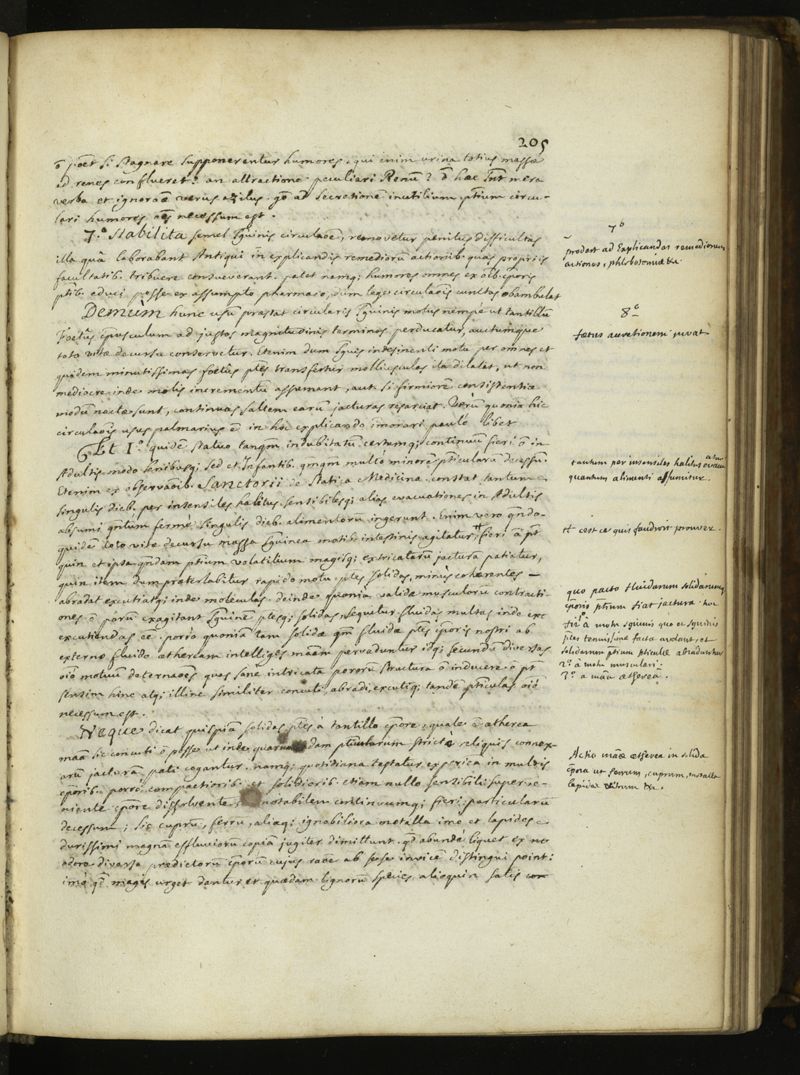 205
õ põet si stagnare supponerentur humores. qui enim urina totius massa
ad renes conflueret? an attractione peculiari Renũ? õ hæc sunt mera
verba et ignorãæ verus asilus. gõ ad secretionẽ inutilium ptium circu-
lari humores oẽs necessum est.
7.º Stabilita semel sguinis circulaõe, removetur penitus difficultas
illa quâ laborabant Antiqui in explicandis remediorũ actionib. quas propriis
facultatib. tribuere consueverant. patet namq; humores omnes ex oĩb. cp̃oris
ptib. educi posse ex assumpto pharmaco, dum lege circulaõis cunctas obambulat
Demùm hunc usũ præstat circularis sguinis motus nempè ut tantillũ
fœtûs cp̃usculum ad justos magnitudinis terminos perducatur, auctumque
toto vitæ decursu conservetur. Etenim dum sguis indesinenti motu per omnes et
quidem minutissimas fœtûs ptes transfertur molliusculas illa dilatat, ut non
mediocre inde molis incrementũ assumant, aut si firmiorẽ consistentiæ
modũ nactæ sunt, continuas saltem earũ jacturas resarciat. Verũ quoniã hic
circulaõis usus palmarius ẽ in hoc explicando imorari paulò libet
Et 1º quidẽ statuo tanqm̃ indubitatũ certumq; continuũ fieri õ in
Adultis modo senibusq; sed et Infantib. qmqm̃ multò minorẽ pticularũ decessũ.
Etenim ex observaõib. Sanctorii de Statica Medicina constat tantum
singulis dieb. per insensiles habitus, sensibilesq; alias evacuationes in Adultis
absumi qntũm fermè singulis dieb. alimentorũ ingerunt. Enim vero qndo-
quidẽ toto vitæ decursu massa sguinea motib. intestinis agitatur, fieri õ pt
quin et ipsa qndam ptium volatilium magisq; extricatarũ jacturam patiatur,
quin item dum præterlabitur rapido motu ptes solidas, minùs cohærentes
abradat excutiatq; inde moleculas. deinde quoniã validæ musculorũ contracti-
ones õ parũ exagitant sguinẽ ptesq; solidas, sequitur fluidas multas inde exc
excutiendas eẽ. porro quoniã tam solidæ qm̃ fluidæ ptes cp̃oris nostri ab
externo fluido ætheream intelliges mãem pervaduntur idq; secundũ diversas
oĩõ motuũ determaões quos sane intricata pororũ structura õ inducere õ pt
sensim hinc atq; illinc similiter concuti, abradi, excutiq; tandẽ pticulas oĩõ
necessum est.
Neque dicat quispiã solidas ptes a tantillo cp̃ore, quale ẽ ætherea
mãa sic concuti õ posse ut inde quarundam pticularum strictè reliquis connex-
arũ jacturã pati cogantur. namq; quotidiana testatur exp̃ia in multis
cp̃oribus porrò compactiorib. et solidiorib. etiam nullo sensibili superve-
niente cp̃ore dissolvente notabilem continuumq; fieri particularũ
decessum; sic cuprũ, ferrũ, aliaq; ignobiliora metalla imò et lapides
durissimi magnã effluviorũ copiam jugiter dimittunt. qd abundè liquet ex ne
odore diverso prædictorũ cp̃orũ cujus raõe ab sese invicẽ distingui point:
imò qd magis urget dantur et quædam lignorũ species alioquin satis con
7º
prodest ad explicandas remediorum
actiones, phlebotomiæ &c
8º
fœtus auxetionem juvat
tantum per insensiles habitus
quantum alimenti assumitur.
et cest ce quis faudroit prouver.
quo pacto fluidarum solidarumq;
cp̃oris ptium fiat jactura. hoc
fit 1º a motu sguinis quo et sguinis
ptes tenuissimæ factæ avolant, et
solidarum ptium pticulæ abraduntur
2º a motu musculari.
3º a mãa ætherea.
Actio mãæ æthereæ in solida
cp̃ora ut ferrum, cuprum, metalla
lapides vitrum &c.